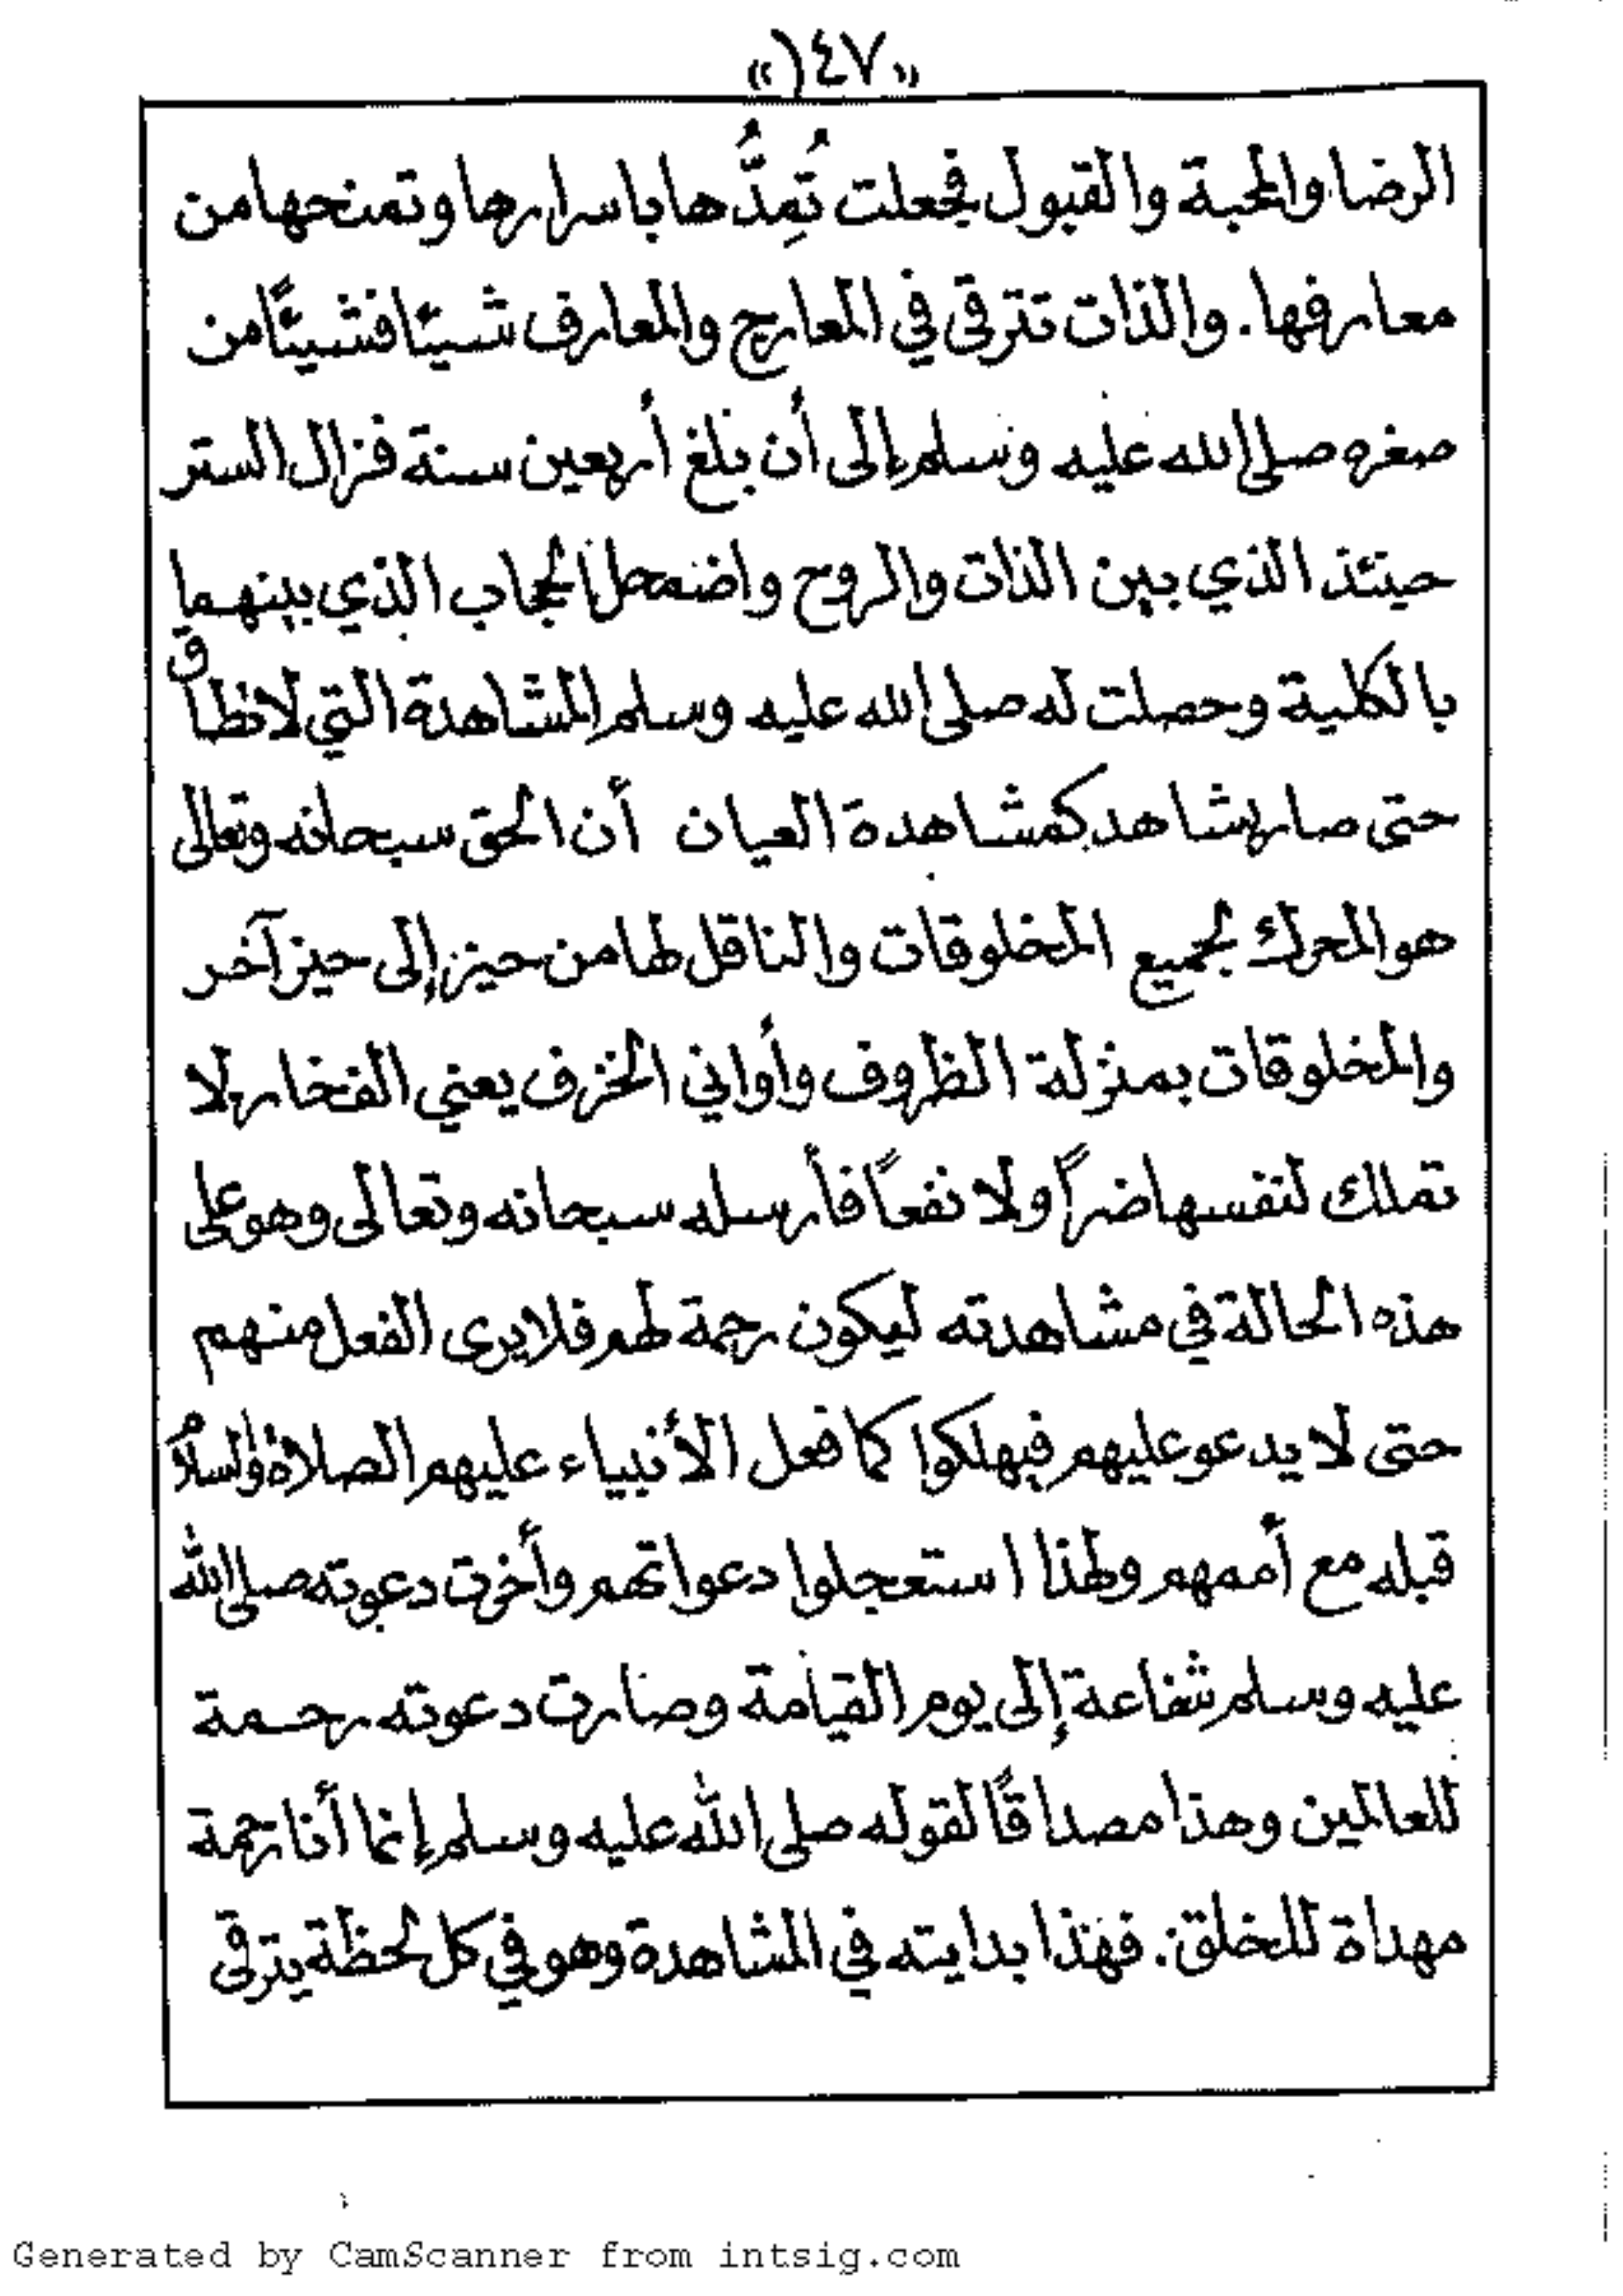 «١٤٧»
الرضا والمحبة والقبول فجعلت تُمِدُّها باسرارها وتمنحها من
معارفها. والذات تترقى في المعارج والمعارف شيئا فشيئًا من
صغره صلى الله عليه وسلم إلى أن بلغ أربعين سنة فزال الستر
حينئذ الذي بين الذات والروح واضمحل الحجاب الذي بينهما
بالكلية وحصلت له صلى الله عليه وسلم المشاهدة التي لا تطاق
حتى صار يشاهد كمشاهدة العيان أن الحق سبحانه وتعالى
هو المحرك لجميع المخلوقات والناقل لها من حيز إلى حيز آخر
والمخلوقات بمنزلة الظروف وأواني الخزف يعني الفخار لا
تملك لنفسها ضراً ولا نفعًا فأرسله سبحانه وتعالى وهو على
هذه الحالة في مشاهدته ليكون رحمة لهم فلا يرى الفعل منهم
حتى لا يدعو عليهم فيهلكوا كما فعل الأنبياء عليهم الصلاة والسلام
قبله مع أممهم ولهذا استعجلوا دعواتهم وأخرت دعوته صلى الله
عليه وسلم شفاعة إلى يوم القيامة وصارت دعوته رحمة
للعالمين وهذا مصداقًا لقوله صلى الله عليه وسلم إنما أنا رحمة
مهداة للخلق. فهذا بدايته في المشاهدة وهو في كل لحظة يترقى
Generated by CamScanner from intsig.com